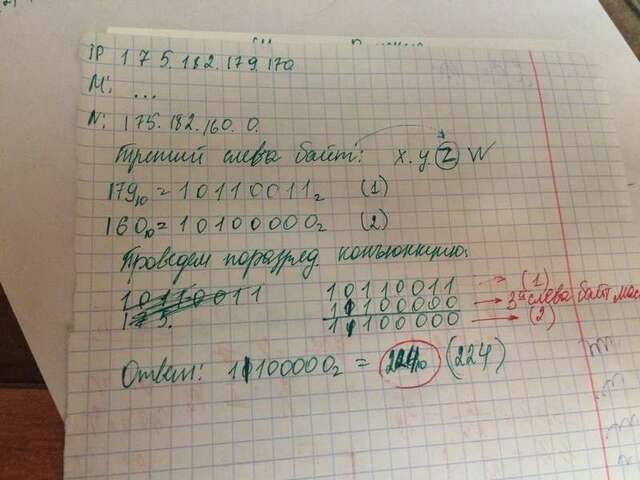 IP 175.182.179.170
М: ...
N: 175.182.160.0.
Третий слева байт: x.y(z)W
179₁₀ = 10110011₂ (1)
160₁₀ = 10100000₂ (2)
Проведем поразряд конъюнкцию:
10110011 10110011 → (1)
175. 11100000 → 3й слева байт мас
11100000 → (2)
Ответ: 11100000₂ = 224₁₀ (224)